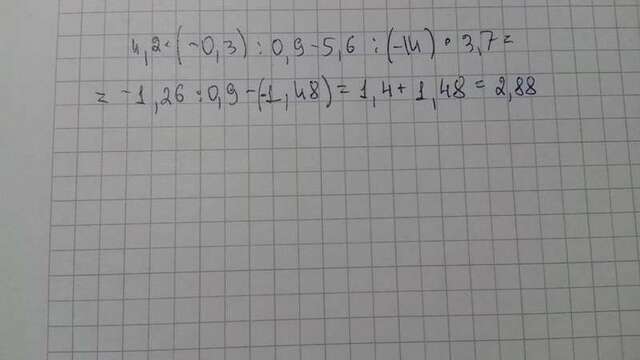 4,2·(-0,3) : 0,9 - 5,6 : (-14) · 3,7 =
= -1,26 : 0,9 - (-1,48) = 1,4 + 1,48 = 2,88